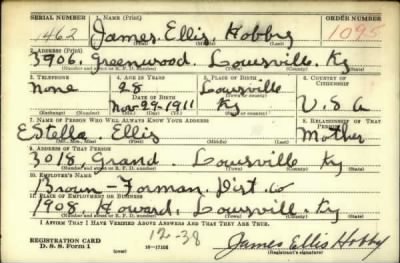 SERIAL NUMBER 1. NAME (Print) ORDER NUMBER
1462 James Ellis Hobby 1095
2. ADDRESS (Print)
3906. Greenwood. Louisville Ky
(Number and street or R. F. D. number) (Town) (County) (State)
3. TELEPHONE 4. AGE IN YEARS 5. PLACE OF BIRTH 6. COUNTRY OF CITIZENSHIP
None 28 Louisville
DATE OF BIRTH (Town or county)
Nov 29-1911 Ky U.S.A
(Exchange) (No.) (Mo.) (Day) (Yr.) (State or country)
7. NAME OF PERSON WHO WILL ALWAYS KNOW YOUR ADDRESS 8. RELATIONSHIP OF THAT PERSON
Estella Ellis Mother
9. ADDRESS OF THAT PERSON
3018. Grand. Louisville Ky
(Number and street or R. F. D. number) (Town) (County) (State)
10. EMPLOYER'S NAME
Brown-Forman. Dist. Co
11. PLACE OF EMPLOYMENT OR BUSINESS
1908. Howard. Louisville. Ky
(Number and street or R. F. D. number) (Town) (County) (State)
I AFFIRM THAT I HAVE VERIFIED ABOVE ANSWERS AND THAT THEY ARE TRUE.
12-38
REGISTRATION CARD
D. S. S. Form 1 (over) 16-17105 James Ellis Hobby
(Registrant's signature)